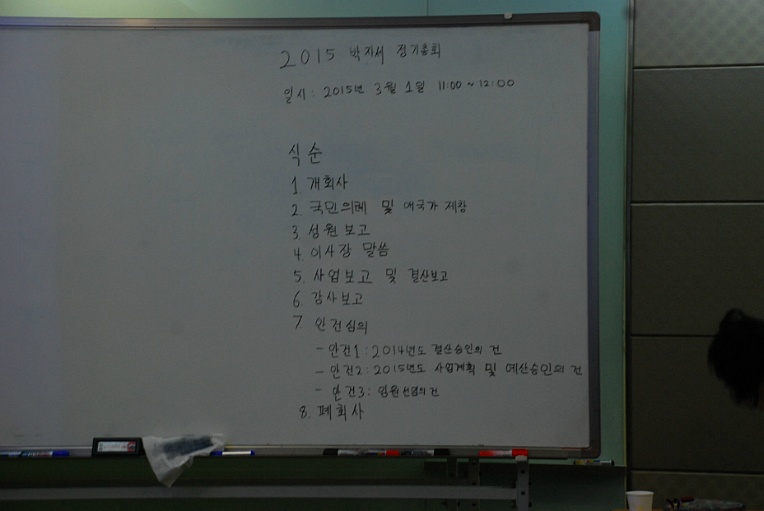 2015 박지서 정기총회
일시 : 2015년 3월 1일 11:00 ~ 12:00
식순
1. 개회사
2. 국민의례 및 애국가 제창
3. 성원보고
4. 이사장 말씀
5. 사업보고 및 결산보고
6. 감사보고
7. 안건심의
- 안건1 : 2014년도 결산승인의 건
- 안건2 : 2015년도 사업계획 및 예산승인의 건
- 안건3 : 임원선임의 건
8. 폐회사